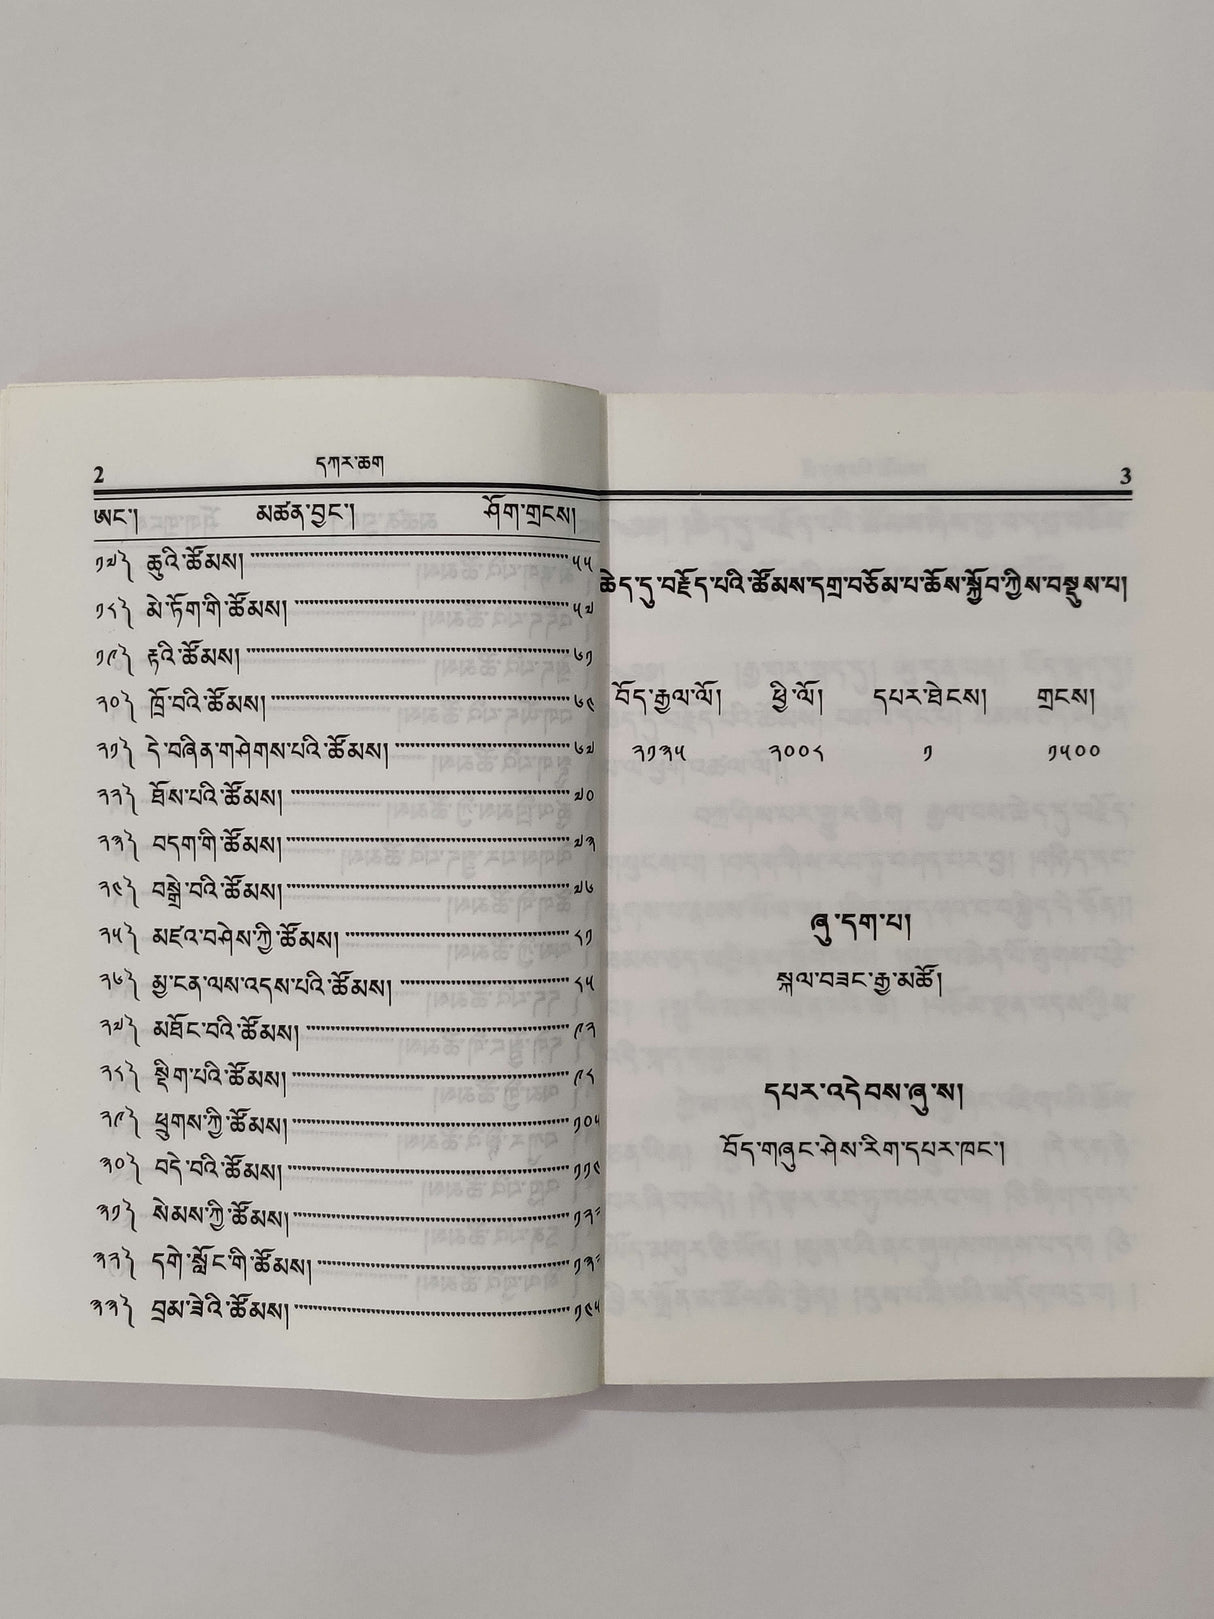 2 དཀར་ཆག
ཨང་། མཚན་བྱང་། ཤོག་གྲངས།
༡༧༽ ཆུའི་ཚོམས། ༥༥
༡༨༽ མེ་ཏོག་གི་ཚོམས། ༥༧
༡༩༽ རྟའི་ཚོམས། ༦༡
༢༠༽ ཁྲོ་བའི་ཚོམས། ༦༤
༢༡༽ དེ་བཞིན་གཤེགས་པའི་ཚོམས། ༦༧
༢༢༽ ཐོས་པའི་ཚོམས། ༧༠
༢༣༽ བདག་གི་ཚོམས། ༧༣
༢༤༽ བསྒྲེ་བའི་ཚོམས། ༧༦
༢༥༽ མཛའ་བཤེས་ཀྱི་ཚོམས། ༨༡
༢༦༽ མྱ་ངན་ལས་འདས་པའི་ཚོམས། ༨༥
༢༧༽ མཐོང་བའི་ཚོམས། ༩༢
༢༨༽ སྡིག་པའི་ཚོམས། ༩༨
༢༩༽ ཕྲུགས་ཀྱི་ཚོམས། ༡༠༥
༣༠༽ བདེ་བའི་ཚོམས། ༡༡༤
༣༡༽ སེམས་ཀྱི་ཚོམས།
༣༢༽ དགེ་སློང་གི་ཚོམས།
༣༣༽ བྲམ་ཟེའི་ཚོམས། ༡༤༥
3
ཆེད་དུ་བརྗོད་པའི་ཚོམས་དགྲ་བཅོམ་པ་ཆོས་སྐྱོབ་ཀྱིས་བསྡུས་པ།
བོད་རྒྱལ་ལོ། ཕྱི་ལོ། དཔར་ཐེངས། གྲངས།
༢༡༣༥ ༢༠༠༨ ༡ ༡༥༠༠
ཞུ་དག་པ།
སྐལ་བཟང་རྒྱ་མཚོ།
དཔར་འདེབས་ཞུ་ས།
བོད་གཞུང་ཤེས་རིག་དཔར་ཁང་།